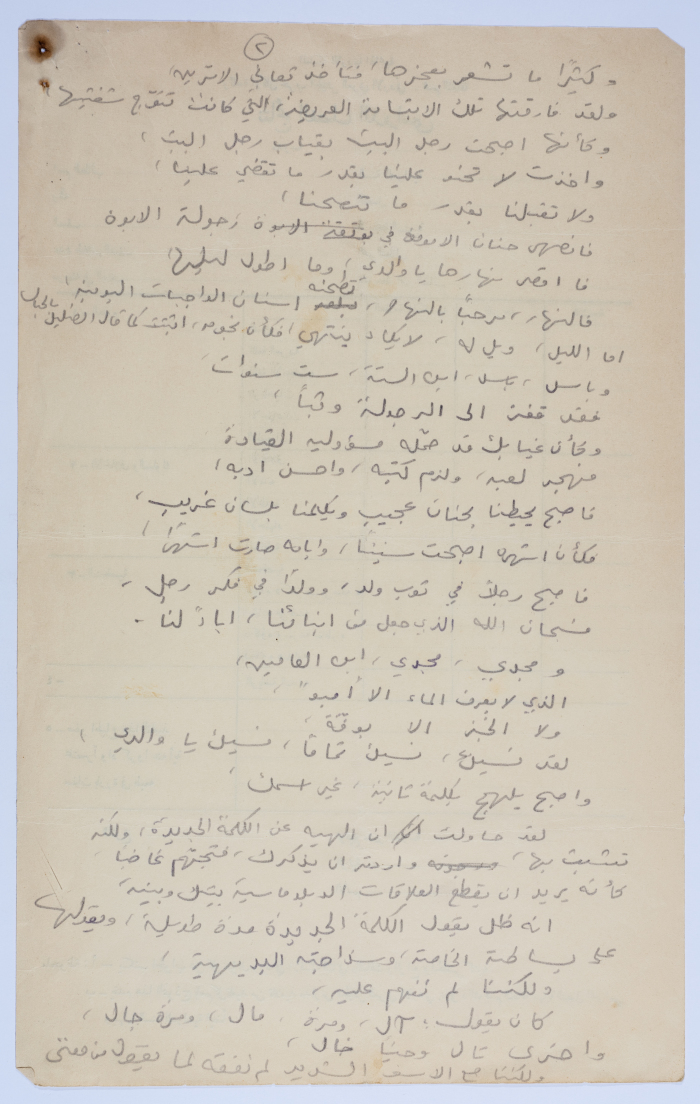 ٢
وكثيرًا ما تشعر بعجزها، فتأخذ تعاني الامرين،
ولقد فارقتها تلك الابتسامة العريضة، التي كانت تتوّج شفتيها
وكأنها اصبحت رجل البيت بغياب رجل البيت،
واخذت لا تحنو علينا بقدر ما تقضي علينا،
ولا تقبلنا بقدر ما تنصحنا،
فانصهر حنان الامومة في بوتقة رجولة الابوة
فما اقصر نهارها يا والدي، وما اطول ليلها،
فالنهار، مرحباً بالنهار، تضحنه اسنان الواجبات اليومية،
اما الليل، ويل له، لا يكاد ينتهي، فكأن نجومه، اثبتت كما قال الضليل بالجبال
وباسل، باسل، ابن الستة، ست سنوات،
فقد قفز الى الرجولة وثباً،
وكأن غيابك قد حمّله مسؤولية القيادة
فهجر لعبه، ولزم كتبه، واحسن ادبه،
فاصبح يحيطنا بحنان عجيب ويكلمنا بلسان غريب،
فكأن اشهره اصبحت سنيناً، وايامه صارت اشهرًا،
فاصبح رجلاً في ثوب ولد، وولدًا في فكر رجل،
فسبحان الله الذي جعل من ابنائنا، اباءً لنا.
ومجدي، مجدي، ابن العامين،
الذي لا يعرف الماء الا "امبو"،
ولا الخبز الا بوقة،
لقد نسيك، نسيك تمامًا، نسيك يا والدي،
واصبح يلهج بكلمة ثانية، غير اسمك،
لقد حاولت ان الهيه عن الكلمة الجديدة، ولكنه
تشبث بها، واردته ان يذكرك، فتجهّم غاضباً،
كأنه يريد ان يقطع العلاقات الدبلوماسية بينك وبينه،
انه ظل يقول الكلمة الجديدة مدة طويلة، ويقولها
على بساطته الخاصة، وسذاجته البديهية،
ولكننا لم نفهم عليه،
كان يقول: آل، ومرة، مال، ومرة جال،
واخرى تال وحينا خال،
ولكننا مع الاسف الشديد لم نفقه لما يقول من معنى